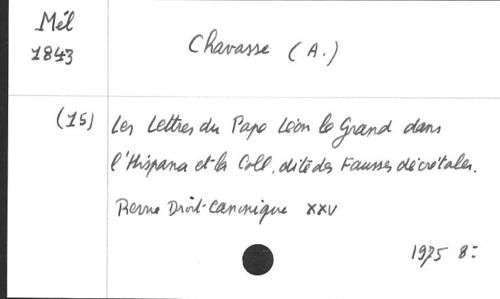 Mél
1843
Chavasse (A.)
(15) Les Lettres du Pape Léon le Grand dans
l'Hispana et la Coll. dite des Fausses décrétales.
Revue Droit-Canonique XXV
1975 8=